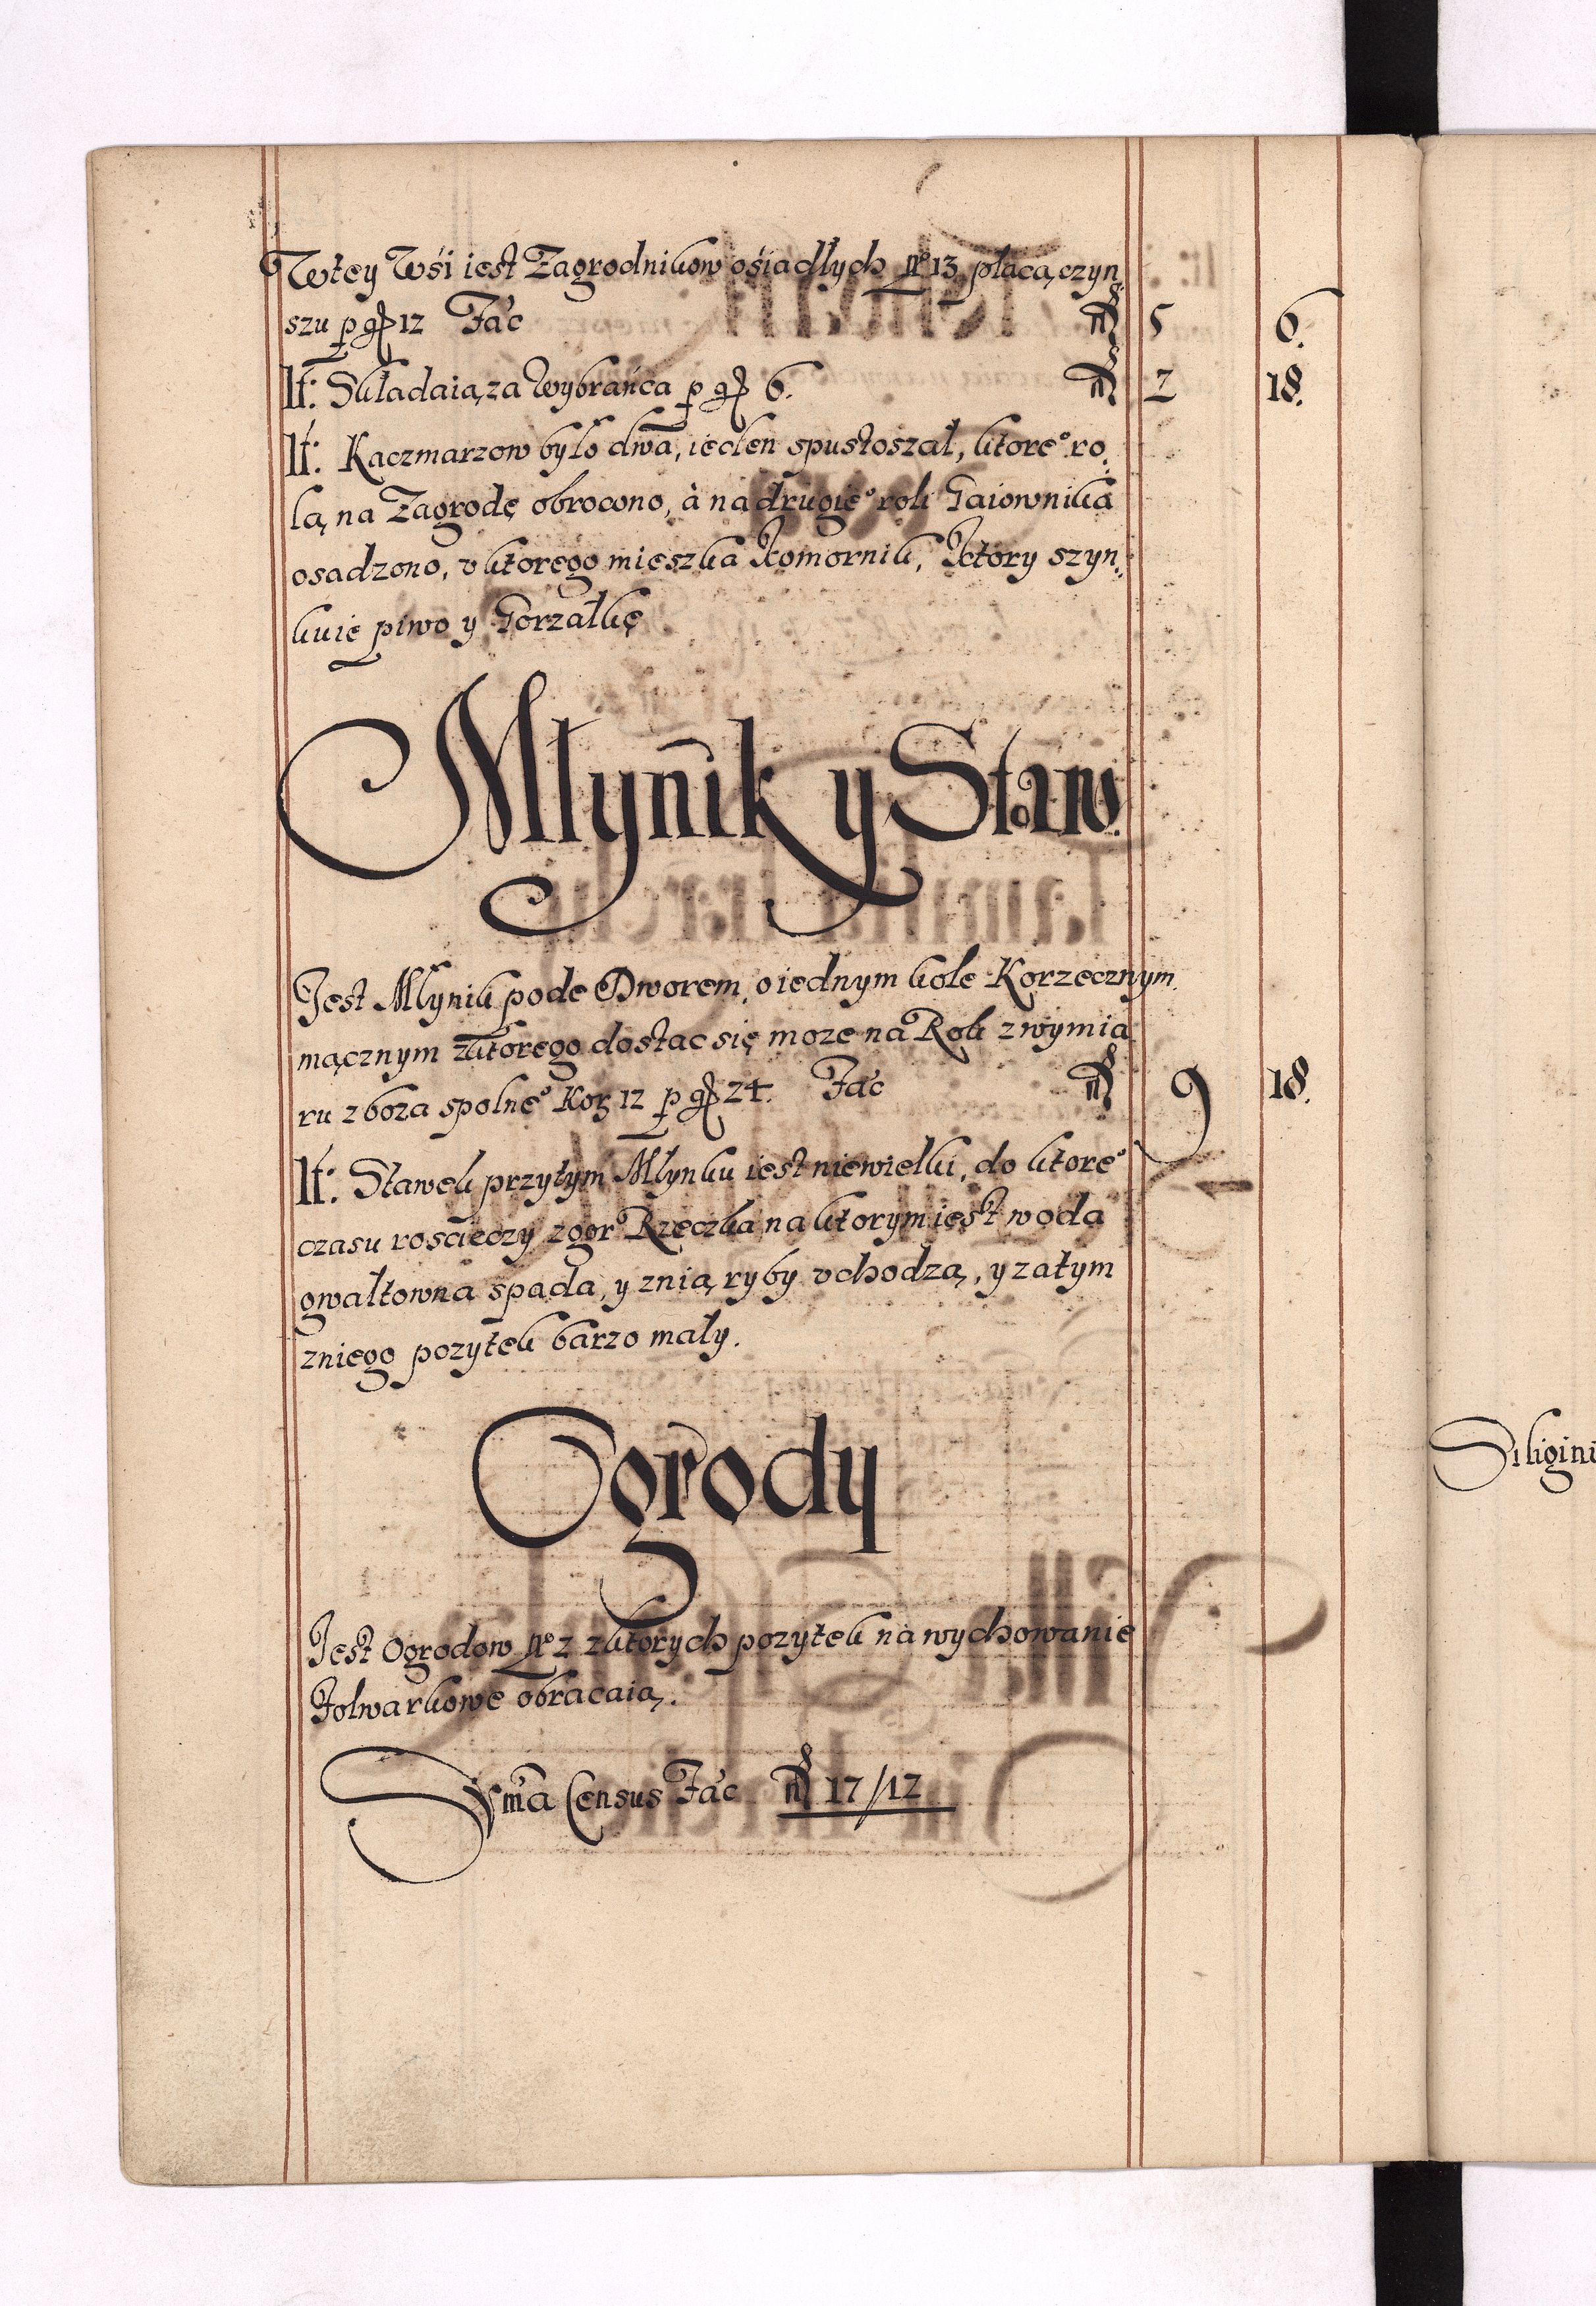 Wtey Wśi iest Zagrodnikow ośiadłych nro 13 płacą czyn
szu p gr 12 Fac̃ fl 5 6.
It: Składaią za Wybrańca p gr 6. fl 2 18.
It: Kaczmarzow było dwa, ieden spustoszał, ktoreº ro
lą na Zagrodę obrocono, à na drugieº roli Gaiownika
osadzono, v ktorego mieszka Komornik, Który szyn
kuie piwo y Gorzałkę
Młynik y Staw.
Jest Młynik pode Dworem, o iednym kole Korzecznym
mącznym zktorego dostac się moze na Rok z wymia
ru zboza spolneº Kor 12 p gr 24. Fac̃ fl 9 18.
It: Stawek przytym Młynku iest niewielki, do ktoreº
czasu rościeczy zgor Rzeczka na ktorym iest woda
gwałtowna spada, y znią ryby vchodzą, y zatym
zniego pozytek barzo mały.
Ogrody
Jest Ogrodow nro 2 zktorych pozytek na wychowanie
Folwarkowe obracaią.
Sm̃a Census Fac̃ fl 17/12
Siligini